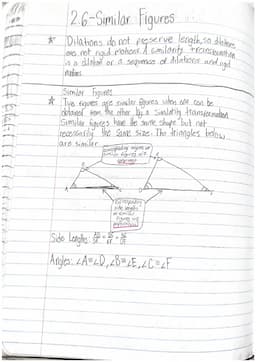 2.6-Similar Figures
Dilations do not preserve length, so dilations
are not rigid motions. A similarity transformation
is a dilation or a sequence of dilations and rigid
motions.
Similar Figures
Two figures are similar figures when one can be
obtained from the other by a similarity transformation.
Similar figures have the same shape but not
necessarily the same size. The triangles below
are similar.
Corresponding angles of
similar figures are
congruent
A
B
C
D
E
F
Corresponding
side lengths
in similar
figures are
proportional
Side Lengths:
Angles: ∠A≅∠D, ∠B≅∠E, ∠C≅∠F